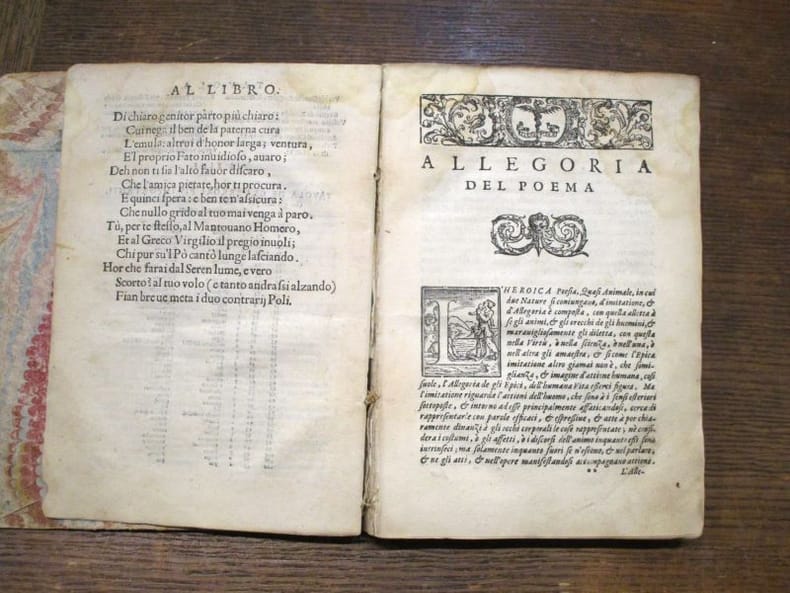 AL LIBRO.
Di chiaro genitor parto più chiaro:
Cui nega il ben de la paterna cura
L'emula: altrui d'honor larga; ventura,
E'l proprio Fato inuidioso, auaro;
Deh non ti sia l'alto fauor discaro,
Che l'amica pietate, hor ti procura.
E quinci spera: e ben te n'assicura:
Che nullo grido al tuo mai venga à paro.
Tù, per te stesso, al Mantouano Homero,
Et al Greco Virgilio il pregio inuoli;
Chi pur su'l Pò cantò lunge lasciando.
Hor che farai dal Seren lume, e vero
Scorto? al tuo volo (e tanto andrassi alzando)
Fian breue meta i duo contrarij Poli.
ALLEGORIA
DEL POEMA
L'HEROICA Poesia, Quasi Animale, in cui
due Nature si coniungano, d'imitatione, &
d'Allegoria è composta, con quella alletta à
se gli animi, & gli orecchi de gli huomini, &
marauigliosamente gli diletta, con questa
nella Virtù, ò nella scienza, ò nell'una, ò
nell'altra gli amaestra, & si come l'Epica
imitatione altro giamai non è, che somi-
glianza, & imagine d'attione humana, cosi
suole, l'Allegoria de gli Epici, dell'humana Vita esserci figura. Ma
l'imitatione riguarda l'attioni dell'huomo, che sono à i sensi esteriori
sottoposte, & intorno ad esse principalmente affaticandosi, cerca di
rappresentarle con parole efficaci, & espressiue, & atte à por chia-
ramente dinanzi à gli occhi corporali le cose rappresentate; nè consi-
dera i costumi, ò gli affetti, ò i discorsi dell'animo inquanto essi sono
intrinseci; ma solamente inquanto fuori se n'escono, & nel parlare,
& ne gli atti, & nell'opere manifestandosi accompagnano attione.
** L'Alle-